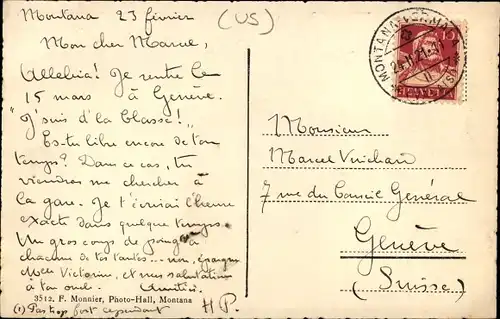 Montana 23 février
(US)
Mon cher Marcel,
Alleluia! Je rentre le
15 mars à Genève.
"J'suis d'la classe!"
Es-tu libre encore de ton
temps? Dans ce cas, tu
viendras me chercher à
la gare. Je t'écrirai l'heure
exacte dans quelque temps.
Un gros coup de poing (1) à
chacune de tes tantes... non, épargne
Mlle Victorine, et mes salutations
à ton oncle.
3512. F. Monnier, Photo-Hall, Montana
(1) Pas trop fort cependant
H P.
MONTANA-VERMALA
10
HELVETIA
Monsieur
Marcel
7 rue du Conseil Général
Genève
(Suisse)